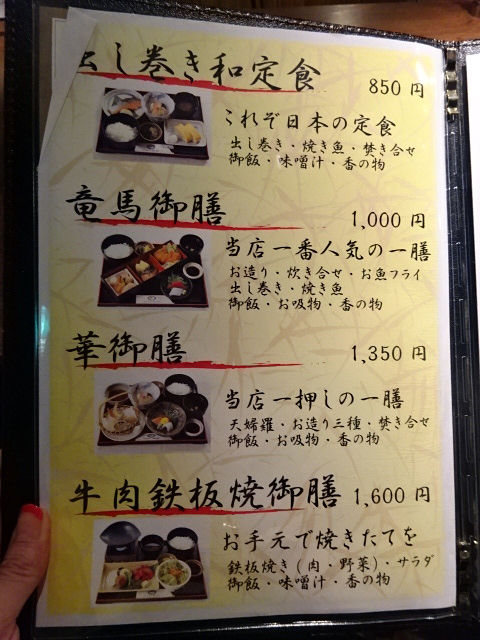 出し巻き和定食 850 円
これぞ日本の定食
出し巻き・焼き魚・焚き合せ
御飯・味噌汁・香の物
竜馬御膳 1,000 円
当店一番人気の一膳
お造り・炊き合せ・お魚フライ
出し巻き・焼き魚
御飯・お吸物・香の物
華御膳 1,350 円
当店一押しの一膳
天婦羅・お造り三種・焚き合せ
御飯・お吸物・香の物
牛肉鉄板焼御膳 1,600 円
お手元で焼きたてを
鉄板焼き(肉・野菜)・サラダ
御飯・味噌汁・香の物